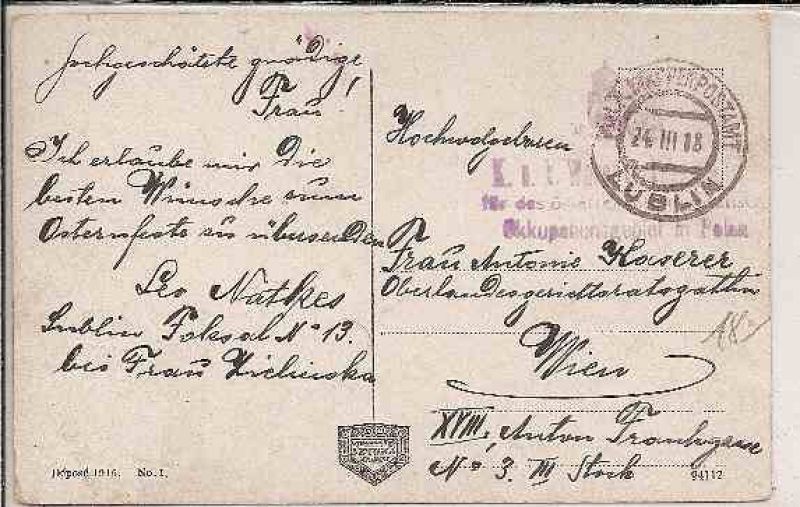 Hochgeschätzte gnädige
Frau!
Ich erlaube mir die
besten Wünsche zum
Osternfeste zu übersenden
Leo Nattkes
Lublin Foksal No 13.
bei Frau Zielinska
Deposé 1916. No. 1.
Hochwolgeboren
K. u. k.
für das
Okkupationsgebiet in Polen
K.u.K. ETAPPENPOSTAMT
24 III 18 8
LUBLIN
Frau Antonie Kaserer
Oberlandesgerichtsratsgattin
Wien
XVIII, Anton Frankgasse
No 3. III Stock
94112